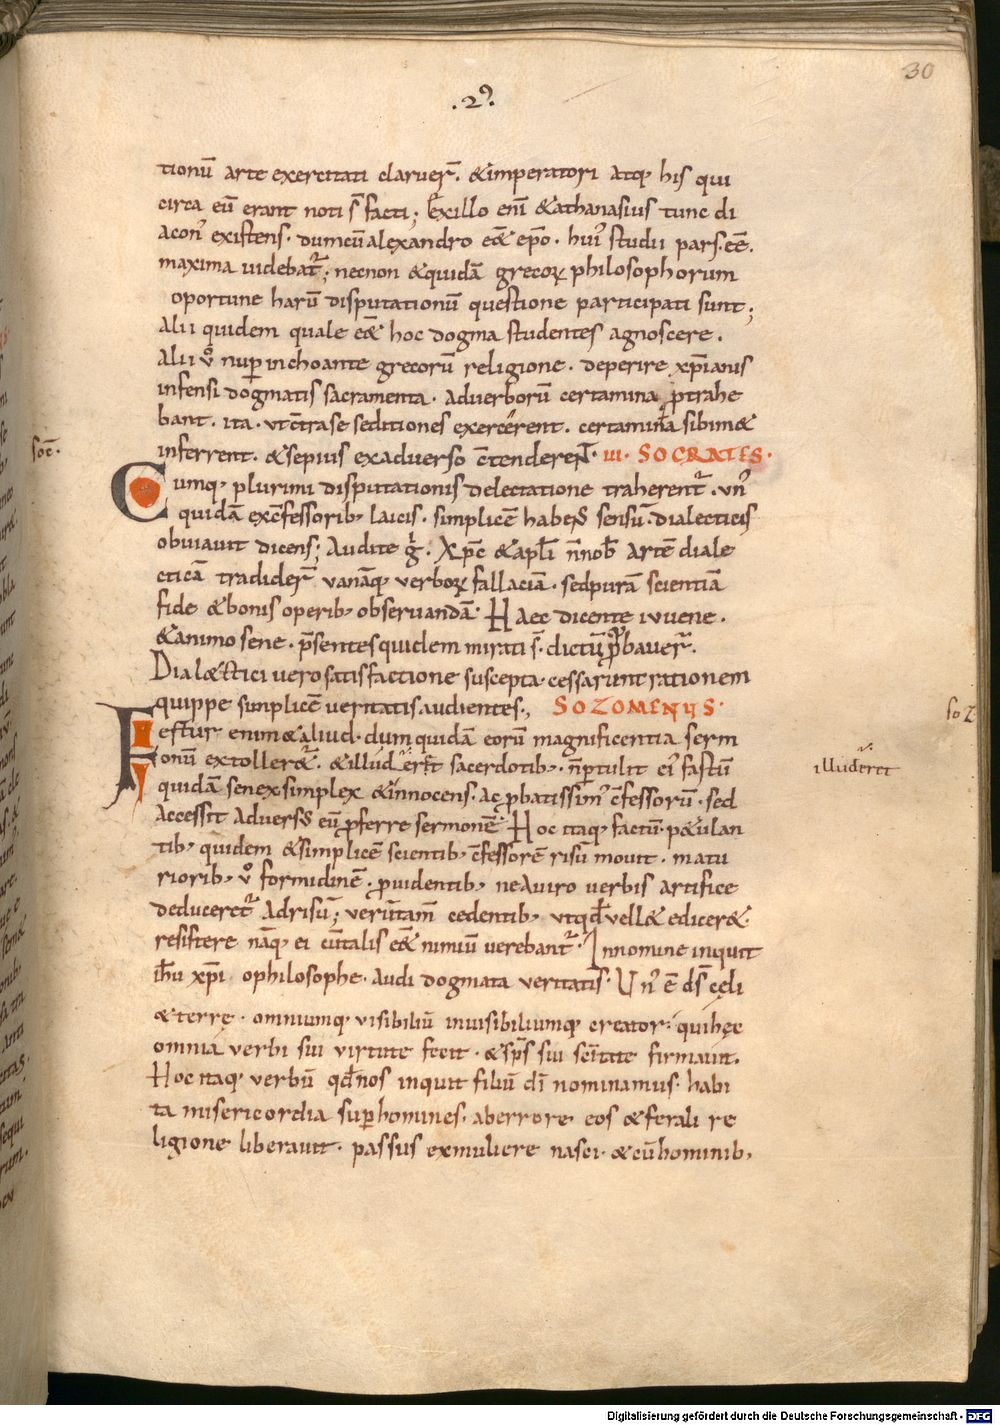 30
.2⁹.
tionū arte exercitati claruer̄. &imperatori atq; his qui
circa eū erant noti s̄ facti; Exillo enī &athanasius tunc di
acon⁹ existens. dumcū alexandro eēt ep̄o. hui⁹ studii pars.eē.
maxima uidebat̄; necnon &quidā grecoꝝ philosophorum
oportune harū disputationū questione participati sunt;
Alii quidem quale eēt hoc dogma studentes agnoscere.
Alii ů nuper inchoante grecorū religione. deperire xp̄ianis
infensi dogmatis sacramenta. Adverborū certamina ꝓtrahe
bant. ita. vt c̄trase seditiones exercerent. certamina sibim&
soc̄.
inferrent. &sepius exadverso c̄tenderent. iii. SOCRATES.
Cumq; plurimi disputationis delectatione traherent̄. vn⁹
quidā exc̄fessorib; laicis. simplicē habens sensū. dialecticis
obviavit dicens; Audite g̊. Xp̄c &apl̄i n̄ nob̄ artē diale
cticā tradider̄ vanāq; verboꝝ fallaciā. sed purā scientiā
fide &bonis operib; observandā. Haec dicente ivvene.
&animo sene. p̄sentes quidem mirati s̄. dictū ꝓbaver̄.
Dial&tici vero satisfactione suscepta. cessarunt rationem
quippe simplicē veritatis audientes., SOZOMENUS.
soz
Festur enim &aliud. dum quidā eorū magnificentia serm
onū extoller&̄. &illuderet sacerdotib;. n̄ pertulit ei⁹ fastū
illuderet
quidā senex simplex &innocens. ac ꝓbatissim⁹ c̄fessorū. sed
Accessit adversus eū ꝓferre sermonē. Hoc itaq; factū. p&ulan
tib; quidem &simplicē scientib; c̄fessorē risū movit. matu
riorib; ů formidinē. ꝓvidentib; ne Aviro verbis artifice
deduceret̄ Adrisū; verūtam̄ cedentib; vtqd̄ vell& edicer&.
resistere nāq; ei cū talis eēt nimiū verebant̄. Innomine inquit
ih̄u xp̄i ophilosophe. Audi dogmata veritatis. Un⁹ ē ds̄ cęli
&terrę. omniumq; visibiliū invisibiliumq; creator. quihęc
omnia verbi sui virtute fecit. &sp̄s sui sc̄itate firmavit.
Hoc itaq; verbū qd̄ nos inquit filiū dī nominamus. habi
ta misericordia super homines. aberrore eos &ferali re
ligione liberavit. passus exmuliere nasci. &cū hominib;